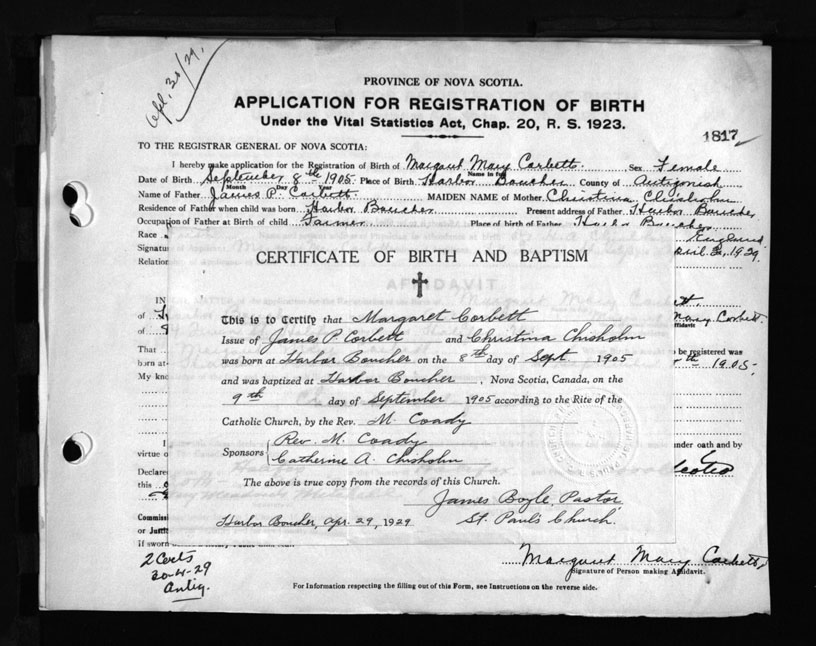 Apl. 30/29.
PROVINCE OF NOVA SCOTIA.
APPLICATION FOR REGISTRATION OF BIRTH
Under the Vital Statistics Act, Chap. 20, R. S. 1923.
1817
TO THE REGISTRAR GENERAL OF NOVA SCOTIA:
I hereby make application for the Registration of Birth of Margaret Mary Corbett Sex Female
Name in full
Date of Birth September 8th 1905 Place of Birth Harbor Boucher County of Antigonish
Month Day Year
Name of Father James P. Corbett MAIDEN NAME of Mother Christina Chisholm
Residence of Father when child was born Harbor Boucher Present address of Father Harbor Boucher
Occupation of Father at Birth of child Farmer Place of birth of Father Harbor Boucher
Race
Signatur
Relation 1929
CERTIFICATE OF BIRTH AND BAPTISM
This is to Certify that Margaret Corbett
Issue of James P. Corbett and Christina Chisholm
was born at Harbor Boucher on the 8th day of Sept 1905
and was baptized at Harbor Boucher, Nova Scotia, Canada, on the
9th day of September 1905 according to the Rite of the
Catholic Church, by the Rev. M. Coady
Sponsors Rev. M. Coady
Catherine A. Chisholm
The above is true copy from the records of this Church.
James Boyle, Pastor
Harbor Boucher, Apr. 29, 1929 St. Paul's Church.
Mary Corbett
be registered was
1905
That
born at
My kno
under oath and by
virtue o
Declare
this
Commiss
or Justi
If sworn
2 Certs
30-4-29
Antig.
Margaret Mary Corbett
Signature of Person making Affidavit.
For Information respecting the filling out of this Form, see Instructions on the reverse side.